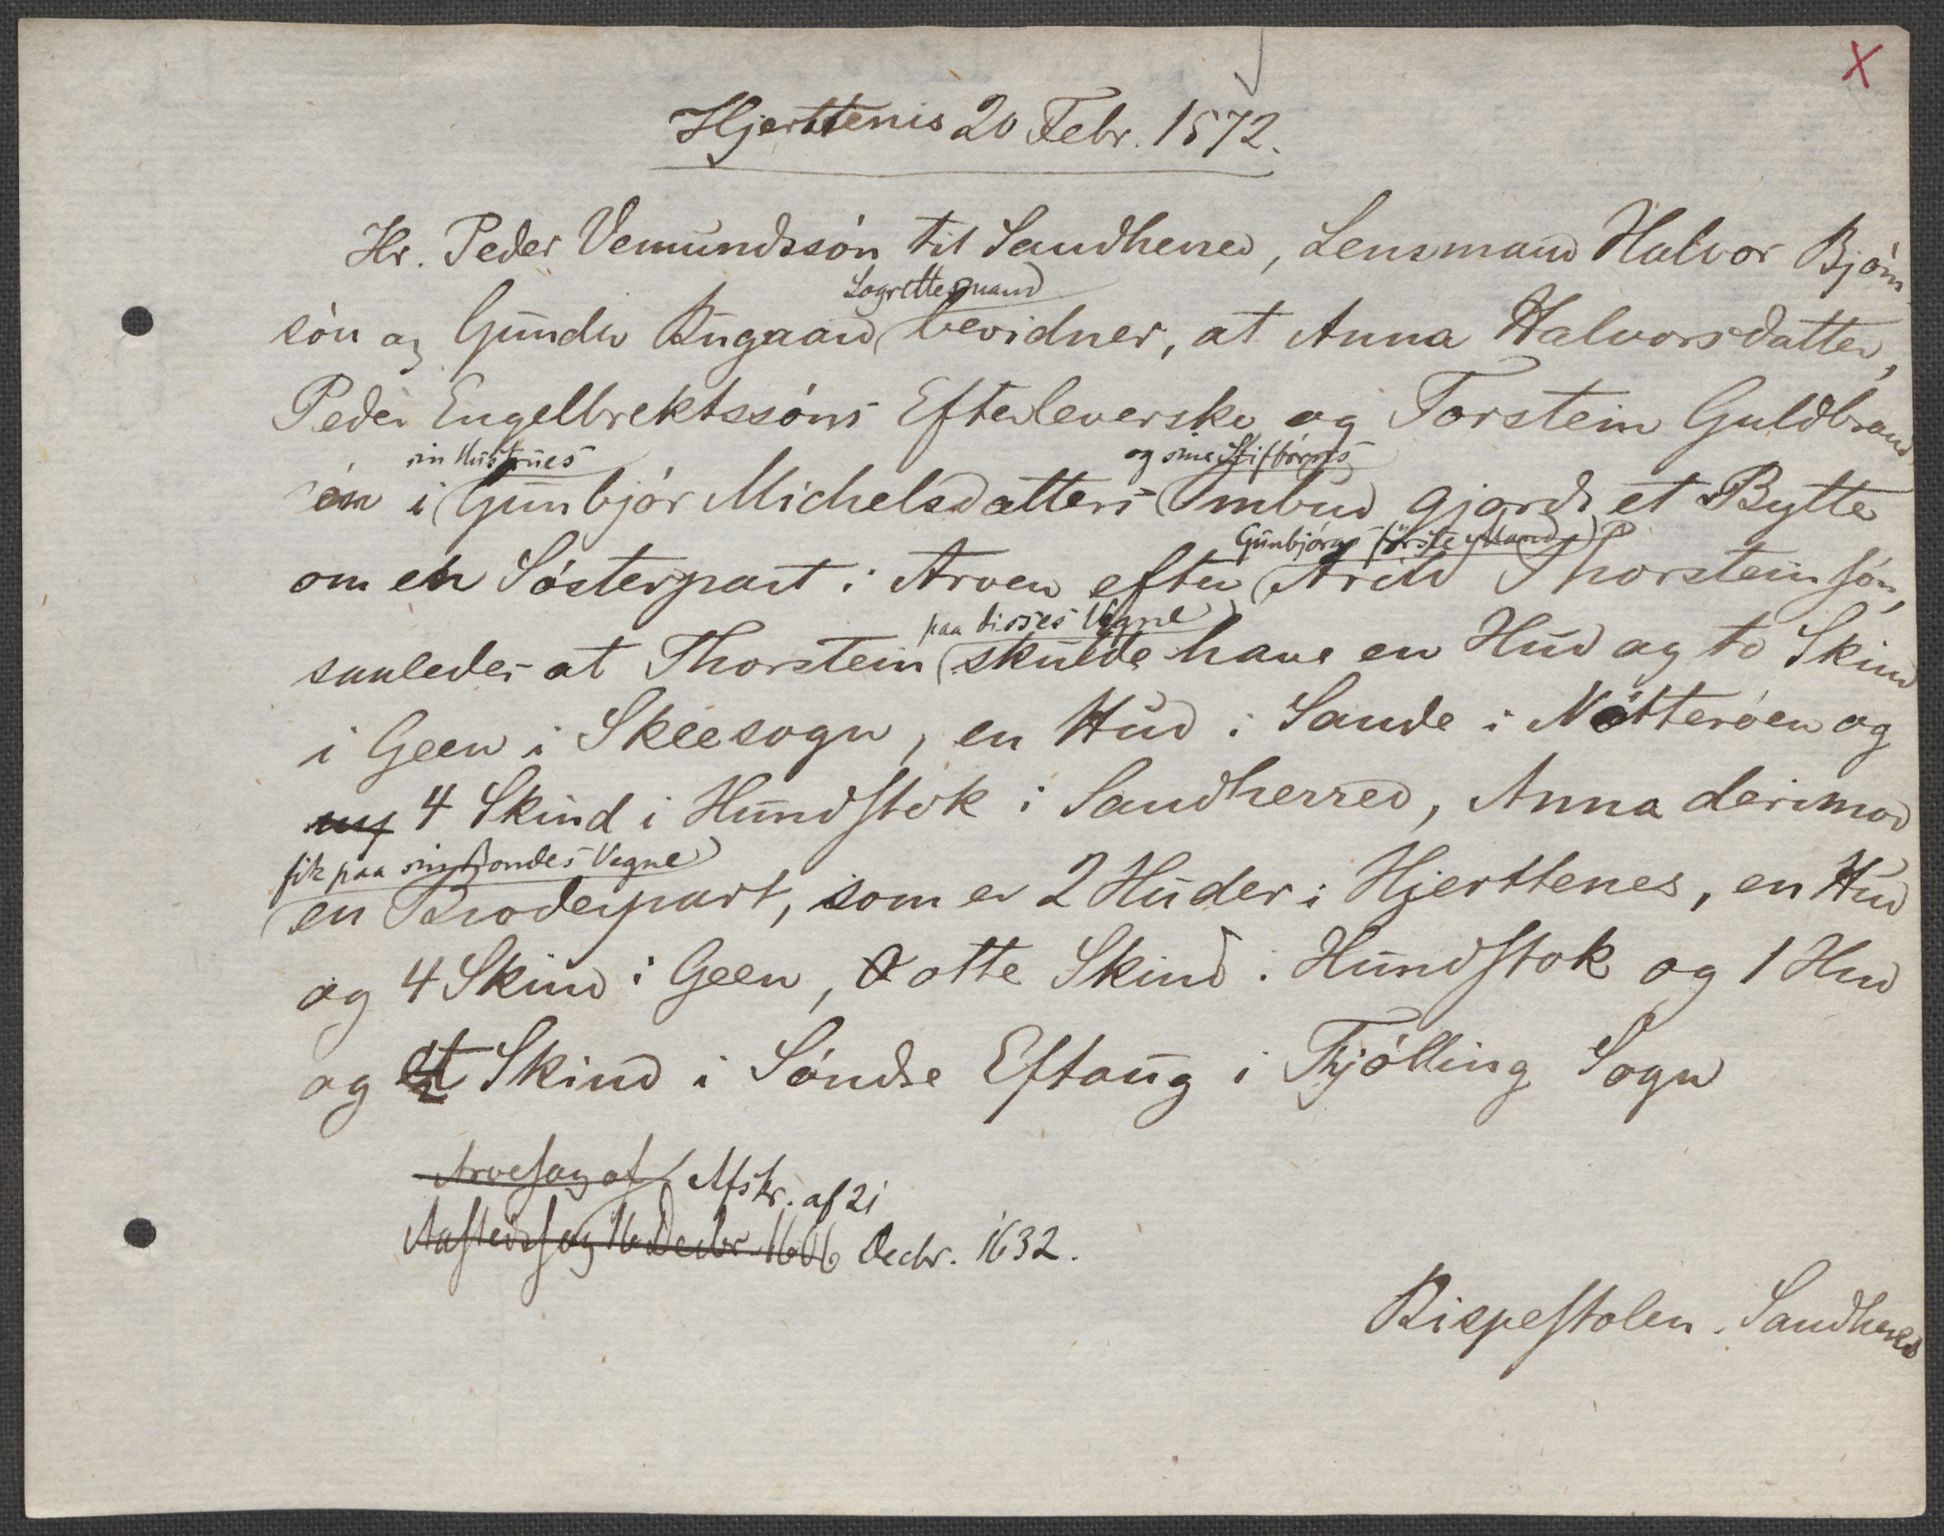 X
Hjerttenis 20 Febr. 1572.
Hr. Peder Vemundssön til Sandherred, Lensmand Halvor Bjørn
Lagrettesmand
sön og Gunder Bugaard bevidner, at Anna Halvorsdatter,
Peder Engelbrektssöns Efterleverske og Torstein Guldbrand
sin Hustrues
og sine Stifbørns
sön i Gunbjör Michelsdatters Ombud gjorde et Bytte
Gunbjörgs förste Mand
om en Sösterpart i Arven efter Arild Thorsteinsön,
paa disses Vegne
saaledes at Thorstein skulde have en Hud og to Skind
i Geen i Skeesogn, en Hud i Sande i Nötteröen og
ny 4 Skind i Hundstok i Sandherred, Anna derimod
fik paa sin Bondes Vegne
en Broderpart, som er 2 Huder i Hjerttenes, en Hud
og 4 Skind i Geen, otte Skind i Hundstok og 1 Hud
og et Skind i Söndre Eftang i Tjölling Sogn
Arvesag af Afskr. af 21
Aastedssag 16 Decbr. 1606 Decbr. 1632.
Bispestolen. Sandherred